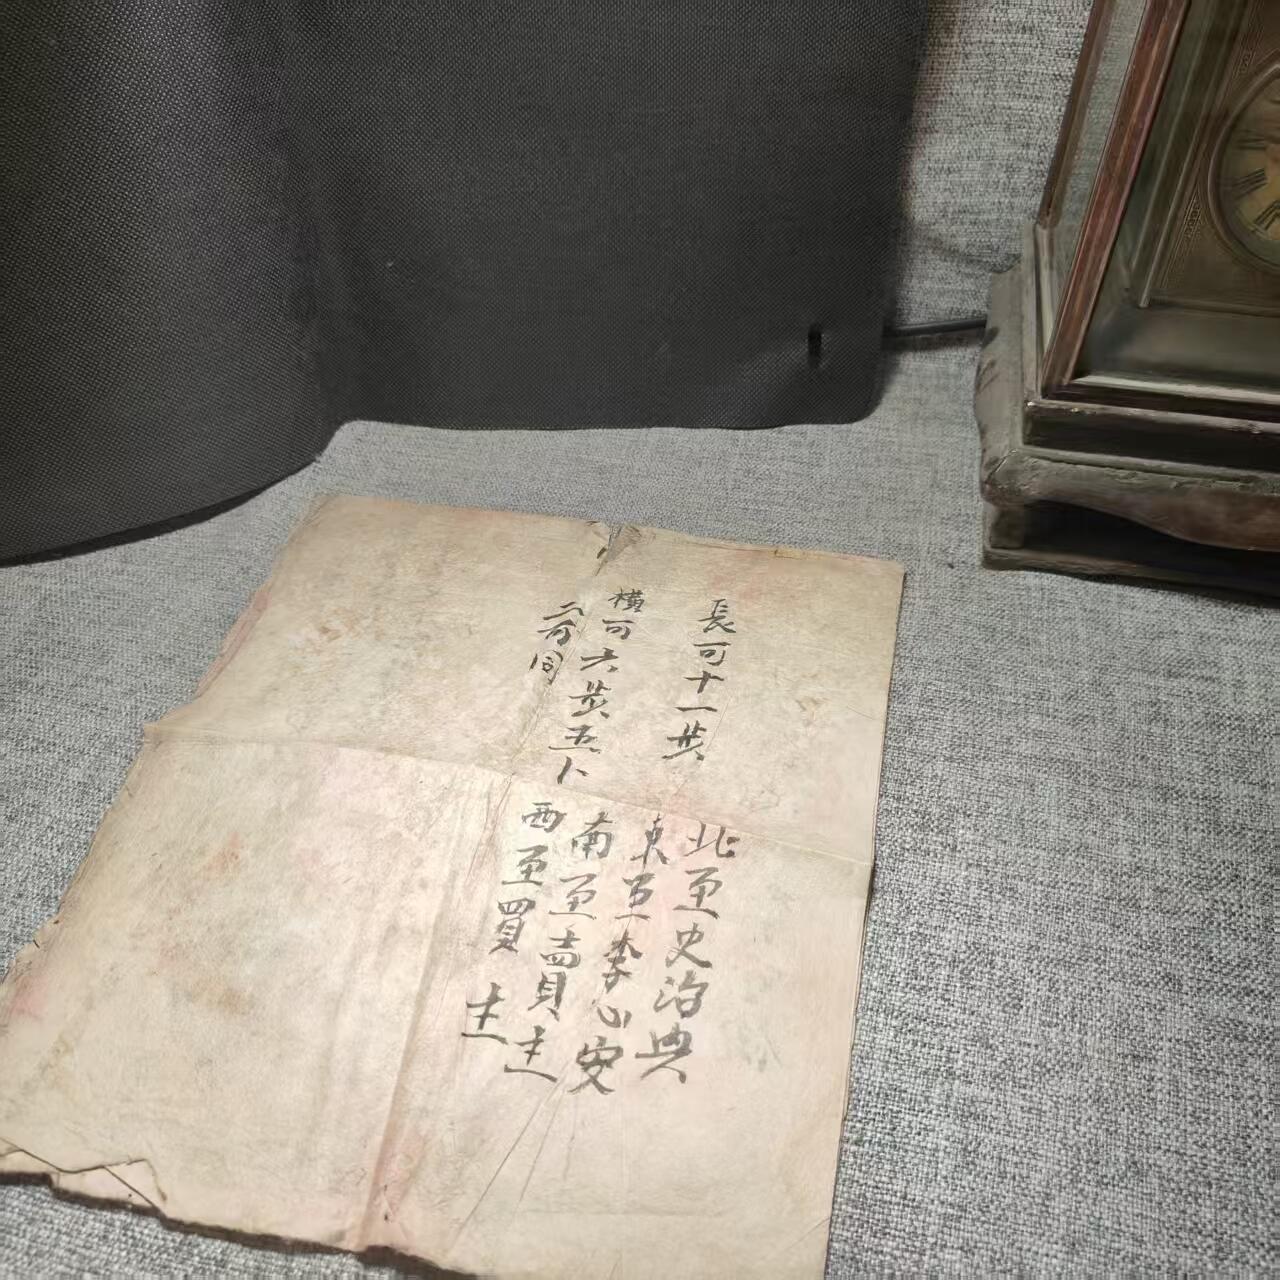 長可十一步
橫可六步五卜
二可同
北至史治典
東至李心安
南至賣主
西至買主